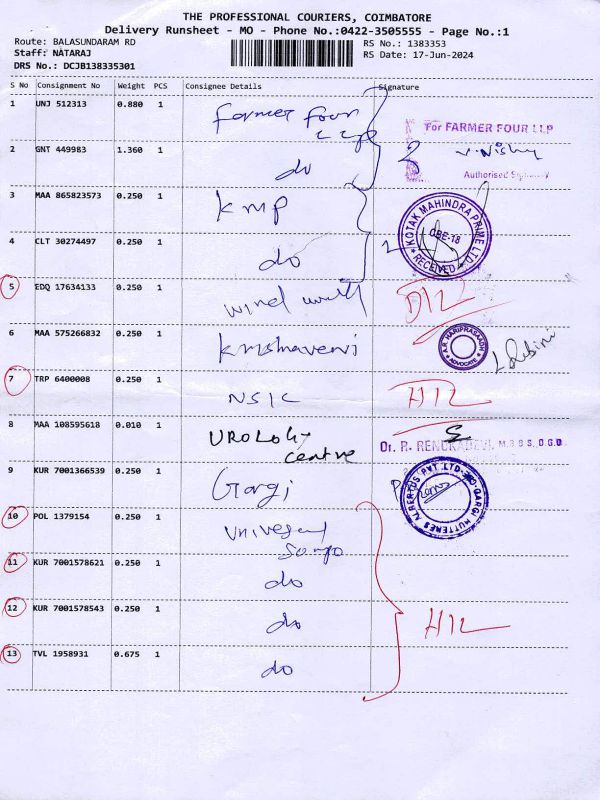 THE PROFESSIONAL COURIERS, COIMBATORE
Delivery Runsheet - MO - Phone No.:0422-3505555 - Page No.:1
Route: BALASUNDARAM RD
RS No.: 1383353
Staff: NATARAJ
RS Date: 17-Jun-2024
DRS No.: DCJB138335301
S No Consignment No Weight PCS Consignee Details Signature
1 UNJ 512313 0.880 1 Farmer Four
LLP
For FARMER FOUR LLP
V. Nishy
Authorised Signatory
2 GNT 449983 1.360 1 do
3 MAA 865823573 0.250 1 KMP
KOTAK MAHINDRA PRIME LTD
CBE-18
RECEIVED
4 CLT 30274497 0.250 1 do
5 EDQ 17634133 0.250 1 wind
6 MAA 575266832 0.250 1 Krishnaveni
A.R. HARIPRASAADH
ADVOCATE
7 TRP 6400008 0.250 1 NSIC
8 MAA 108595618 0.010 1 UROLOGY
centre
Dr. R. RENUKADEVI, M.B.B.S, D.G.O
9 KUR 7001366539 0.250 1 Gargi
GARGI HUTTENES ALBERTUS PVT. LTD
10 POL 1379154 0.250 1 Universal
11 KUR 7001578621 0.250 1 do
12 KUR 7001578543 0.250 1 do
13 TVL 1958931 0.675 1 do